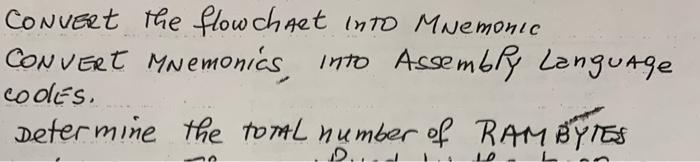 CONVERT the flowchart INTO MNemonic
CONVERT MNemonics into Assembly Language
codes.
Determine the total number of RAM BYTES